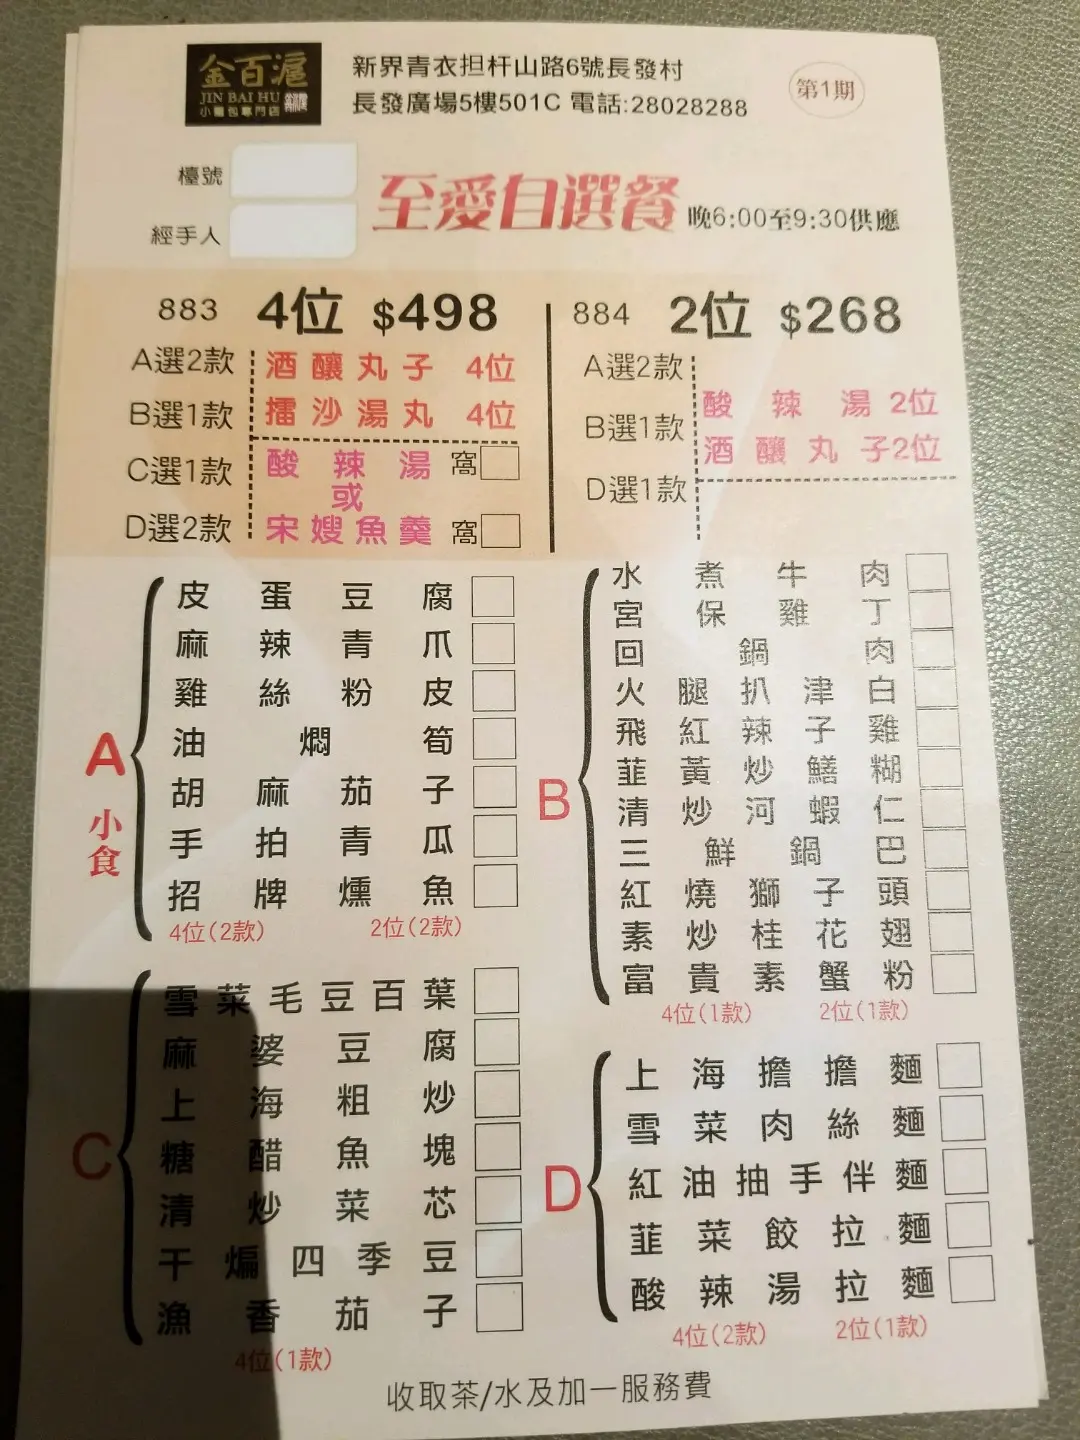 金百滬
JIN BAI HU
小籠包專門店
新界青衣担杆山路6號長發村
長發廣場5樓501C 電話:28028288
第1期
檯號
經手人
至愛自選餐
晚6:00至9:30供應
883 4位 $498
A選2款
B選1款
C選1款
D選2款
酒釀丸子 4位
擂沙湯丸 4位
酸辣湯 窩
或
宋嫂魚羹 窩
884 2位 $268
A選2款
B選1款
D選1款
酸辣湯 2位
酒釀丸子2位
A 小食
皮蛋豆腐
麻辣青爪
雞絲粉皮
油燜筍
胡麻茄子
手拍青瓜
招牌燻魚
4位(2款) 2位(2款)
B
水煮牛肉
宮保雞丁
回鍋肉
火腿扒津白
飛紅辣子雞
韮黃炒鱔糊
清炒河蝦仁
三鮮鍋巴
紅燒獅子頭
素炒桂花翅
富貴素蟹粉
4位(1款) 2位(1款)
C
雪菜毛豆百葉
麻婆豆腐
上海粗炒
糖醋魚塊
清炒菜芯
干煸四季豆
漁香茄子
4位(1款)
D
上海擔擔麵
雪菜肉絲麵
紅油抽手伴麵
韮菜餃拉麵
酸辣湯拉麵
4位(2款) 2位(1款)
收取茶/水及加一服務費